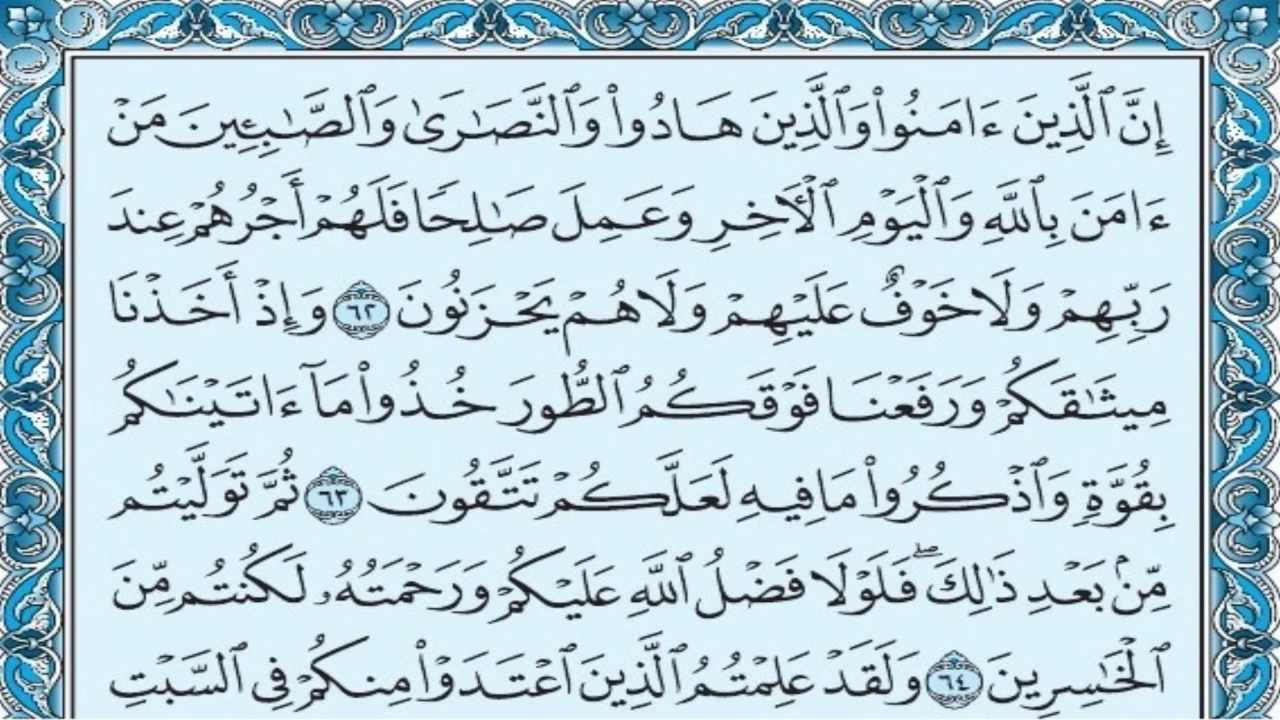 إِنَّ ٱلَّذِينَ ءَامَنُوا۟ وَٱلَّذِينَ هَادُوا۟ وَٱلنَّصَـٰرَىٰ وَٱلصَّـٰبِـِٔينَ مَنْ
ءَامَنَ بِٱللَّهِ وَٱلْيَوْمِ ٱلْـَٔاخِرِ وَعَمِلَ صَـٰلِحًا فَلَهُمْ أَجْرُهُمْ عِندَ
رَبِّهِمْ وَلَا خَوْفٌ عَلَيْهِمْ وَلَا هُمْ يَحْزَنُونَ ٦٢ وَإِذْ أَخَذْنَا
مِيثَـٰقَكُمْ وَرَفَعْنَا فَوْقَكُمُ ٱلطُّورَ خُذُوا۟ مَآ ءَاتَيْنَـٰكُم
بِقُوَّةٍ وَٱذْكُرُوا۟ مَا فِيهِ لَعَلَّكُمْ تَتَّقُونَ ٦٣ ثُمَّ تَوَلَّيْتُم
مِّنۢ بَعْدِ ذَٰلِكَ ۖ فَلَوْلَا فَضْلُ ٱللَّهِ عَلَيْكُمْ وَرَحْمَتُهُۥ لَكُنتُم مِّنَ
ٱلْخَـٰسِرِينَ ٦٤ وَلَقَدْ عَلِمْتُمُ ٱلَّذِينَ ٱعْتَدَوْا۟ مِنكُمْ فِى ٱلسَّبْتِ